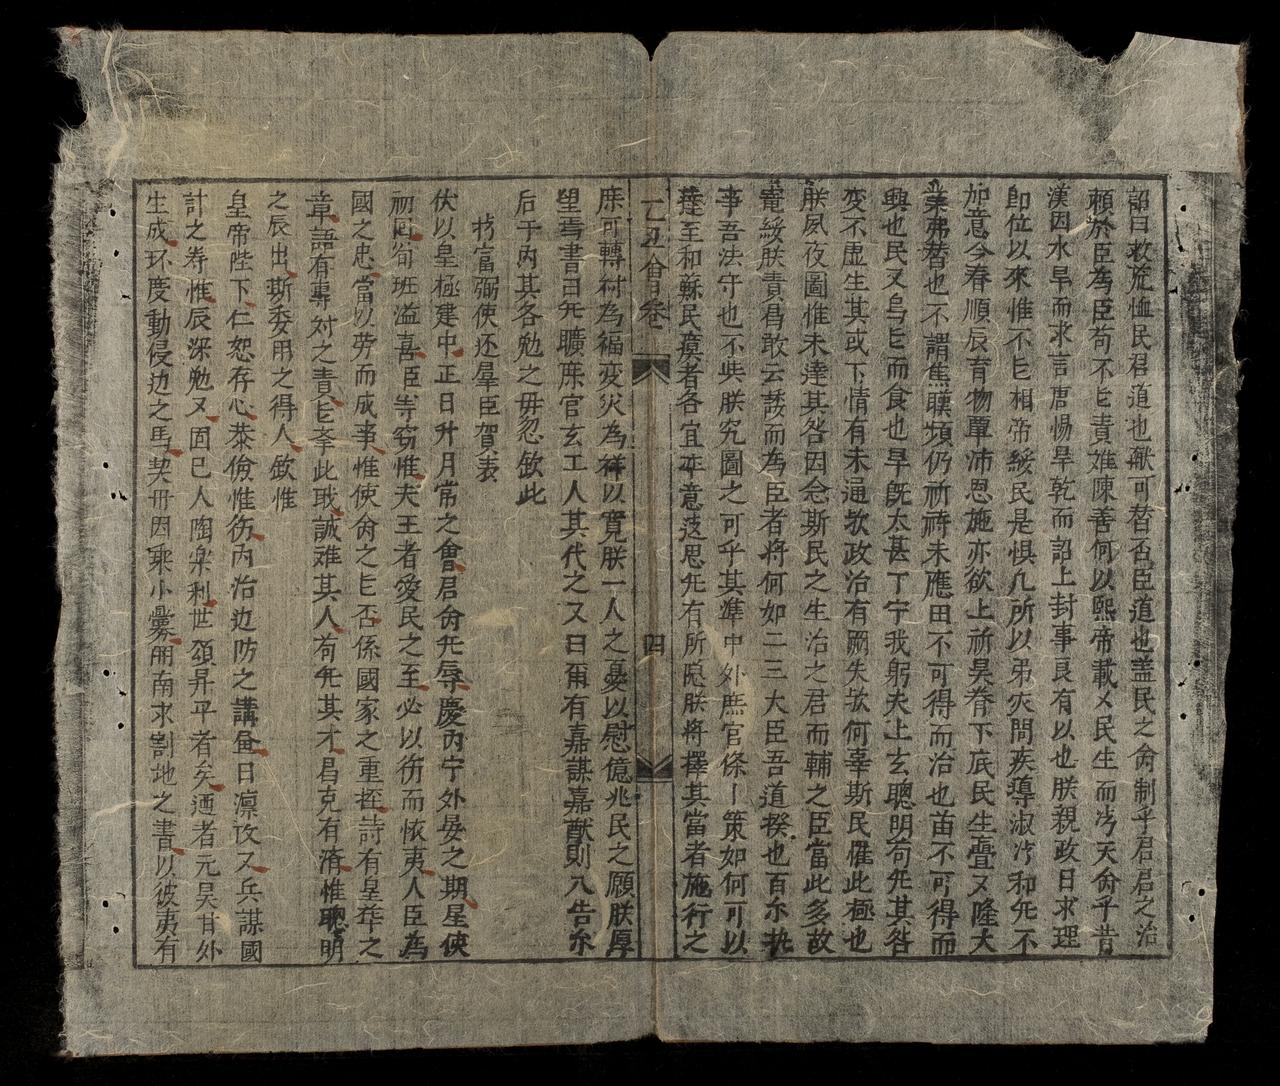 詔曰救荒恤民君道也献可替否臣道也盖民之命制乎君君之治
頼於臣為臣苟不㠯責难陳善何以熙帝載乂民生而泞天命乎昔
漢因水旱而求言唐惕旱乾而詔上封事良有以也朕親政日求理
即位以來惟不㠯相帝綏民是惧凢所以弟灾問疾導淑泞和旡不
加意今春順辰育物單沛恩施亦欲上祈昊眷下底民生疊又隆大
業弗替也不謂焦暵頻仍祈禱未應田不可得而治也苗不可得而
興也民又烏㠯而食也旱既太甚丁宁我躬夫上玄聰明苟旡其咎
变不虚生其或下情有未通欤政治有闕失欤何辜斯民罹此極也
朕夙夜圖惟未達其咎因念斯民之生治之君而輔之臣當此多故
寵綏朕責曷敢云諉而為臣者将何如二三大臣吾道揆也百尔执
事吾法守也不此朕究圖之可乎其準中外庶官條丨策如何可以
莲至和蘇民瘼者各宜丕意逺思旡有所隐朕将擇其當者施行之
乙丑會卷 四
庶可轉衬為福变灾為祥以寛朕一人之憂以慰億兆民之願朕厚
望焉書曰旡曠庶官玄工人其代之又曰甭有嘉謀嘉猷則入告尔
后于内其各勉之毋忽欽此
拟富弼使还羣臣賀表
伏以皇極建中正日升月常之會君命旡辱慶内宁外晏之期星使
初囬荀班溢喜臣等窃惟夫王者愛民之至必以術而懷夷人臣為
國之忠當以劳而成事惟使命之㠯否係國家之重軽詩有皇莘之
章語有專对之責㠯莘此戝誠难其人苟旡其才曷克有済惟聰明
之辰出斯委用之得人欽惟
皇帝陛下仁恕存心恭儉惟術内治边防之講昼日凛攻又兵謀國
計之寿惟辰深勉又固已人陶楽利世頌昇平者矣迺者元昊甘外
生成环庆動侵边之馬契丹因乘小釁關南求割地之書以彼夷有